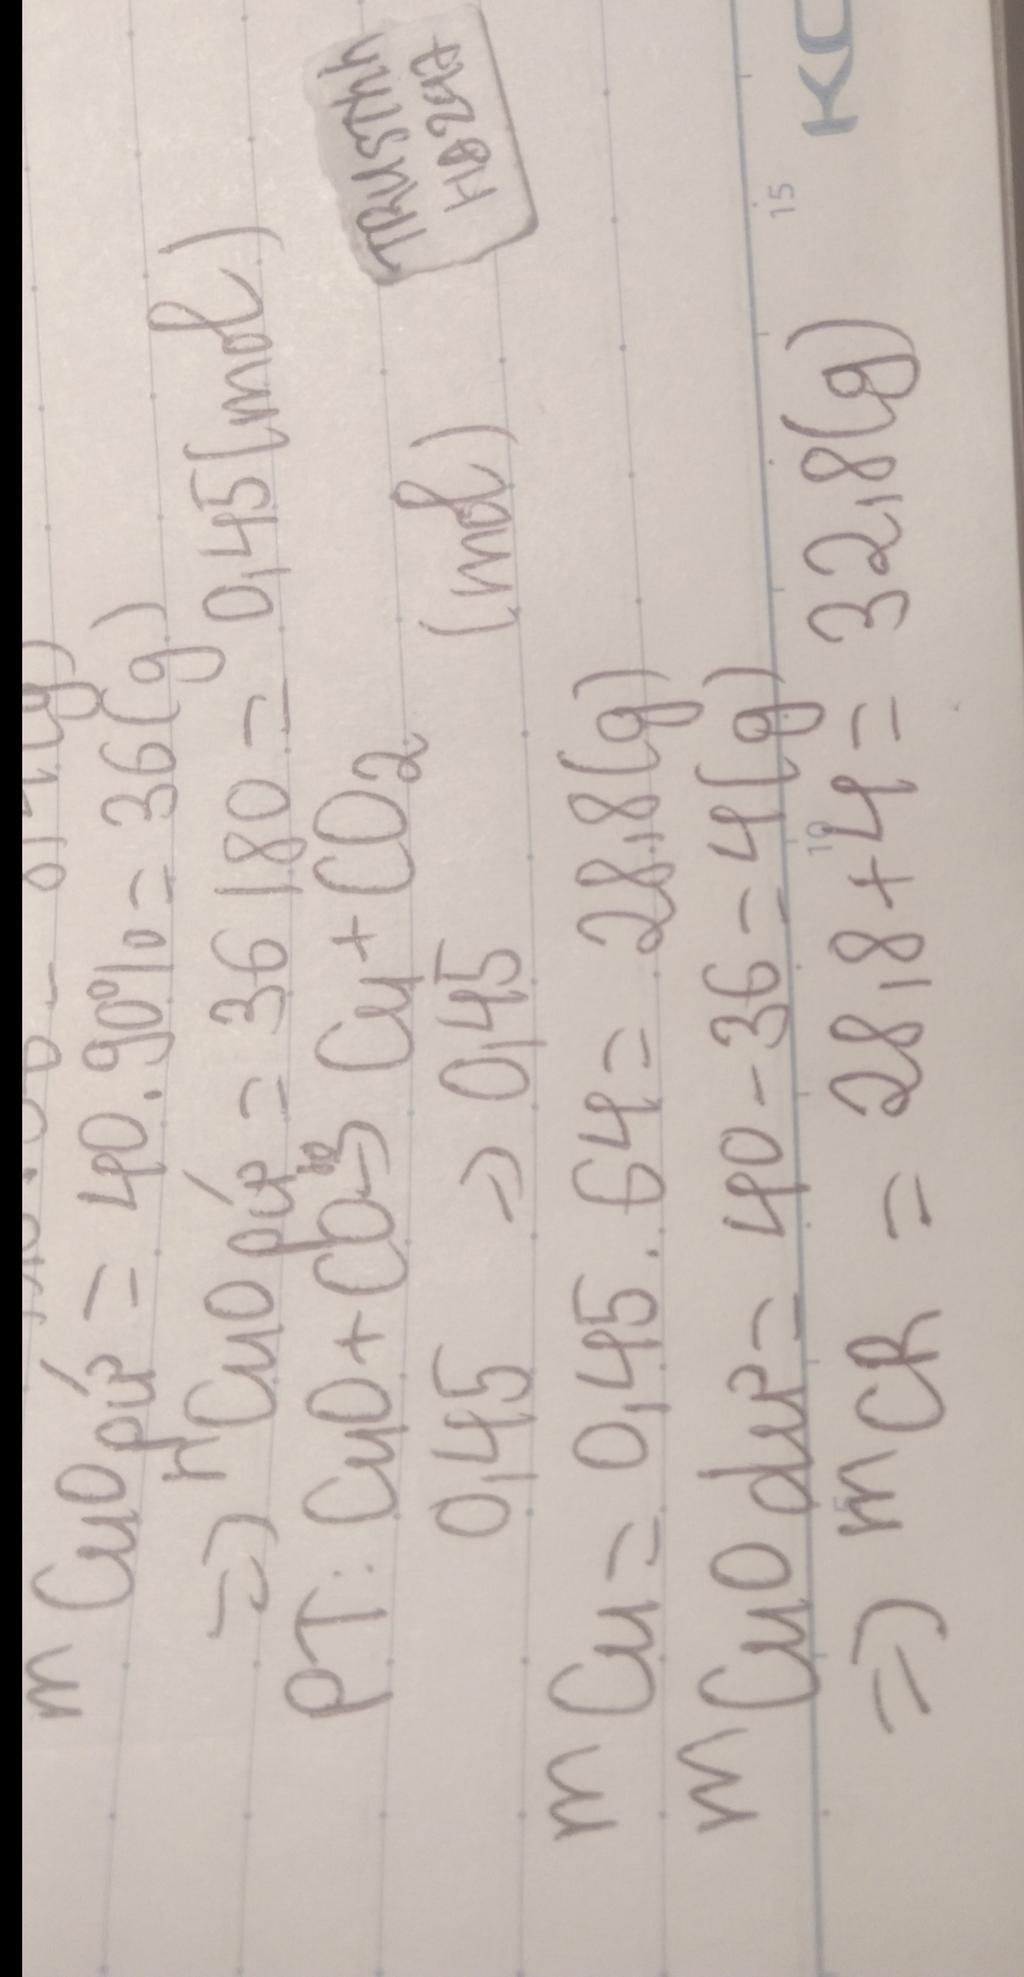 m CuO pứ = 40.90% = 36(g)
=> n CuO pứ = 36 : 80 = 0,45 (mol)
PT: CuO + CO → Cu + CO2
0,45 => 0,45 (mol)
m Cu = 0,45.64 = 28,8(g)
m CuO dư = 40 - 36 = 4(g)
=> m CR = 28,8 + 4 = 32,8(g)
TRUSTNH
5
10
15
KO